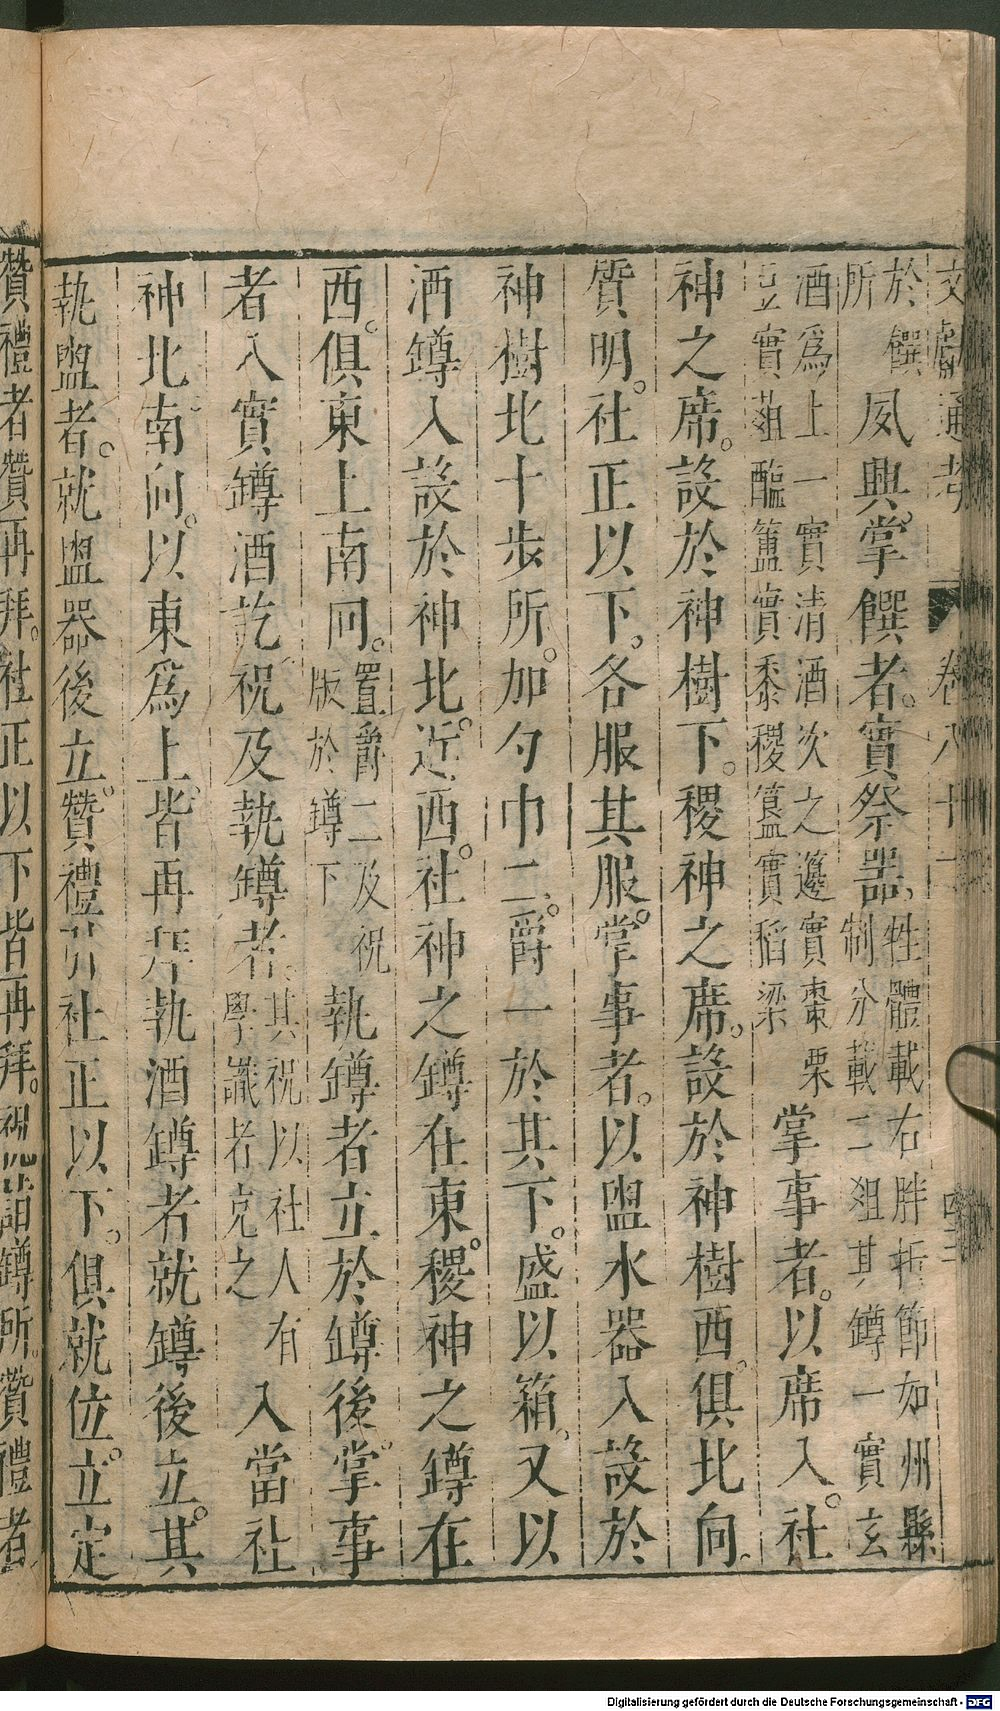 文獻通考 卷八十
於饌
所
夙興。掌饌者。實祭器、
牲體載右胖折節如州縣
制分載二俎其罇一實玄
酒爲上一實清酒次之籩實棗栗
豆實葅醢簠實黍稷簋實稻粱
掌事者。以席入。社
神之席。設於神樹下。稷神之席。設於神樹西。俱北向。
質明。社正以下。各服其服。掌事者。以盥水器入設於
神樹北十步所。加勺巾二。爵一於其下。盛以箱。又以
酒罇入設於神北。近西。社神之罇在東。稷神之罇在
西。俱東上南向。
置爵二及祝
版於罇下
執罇者立於罇後。掌事
者入實罇酒訖。祝及執罇者。
其祝以社人有
學識者充之
入當社
神北南向。以東爲上。皆再拜執酒罇者就罇後立。其
執盥者。就盥器後立。贊禮引社正以下。俱就位立。定
贊禮者贊再拜。社正以下皆再拜。祝詣罇所。贊禮者
Digitalisierung gefördert durch die Deutsche Forschungsgemeinschaft - DFG